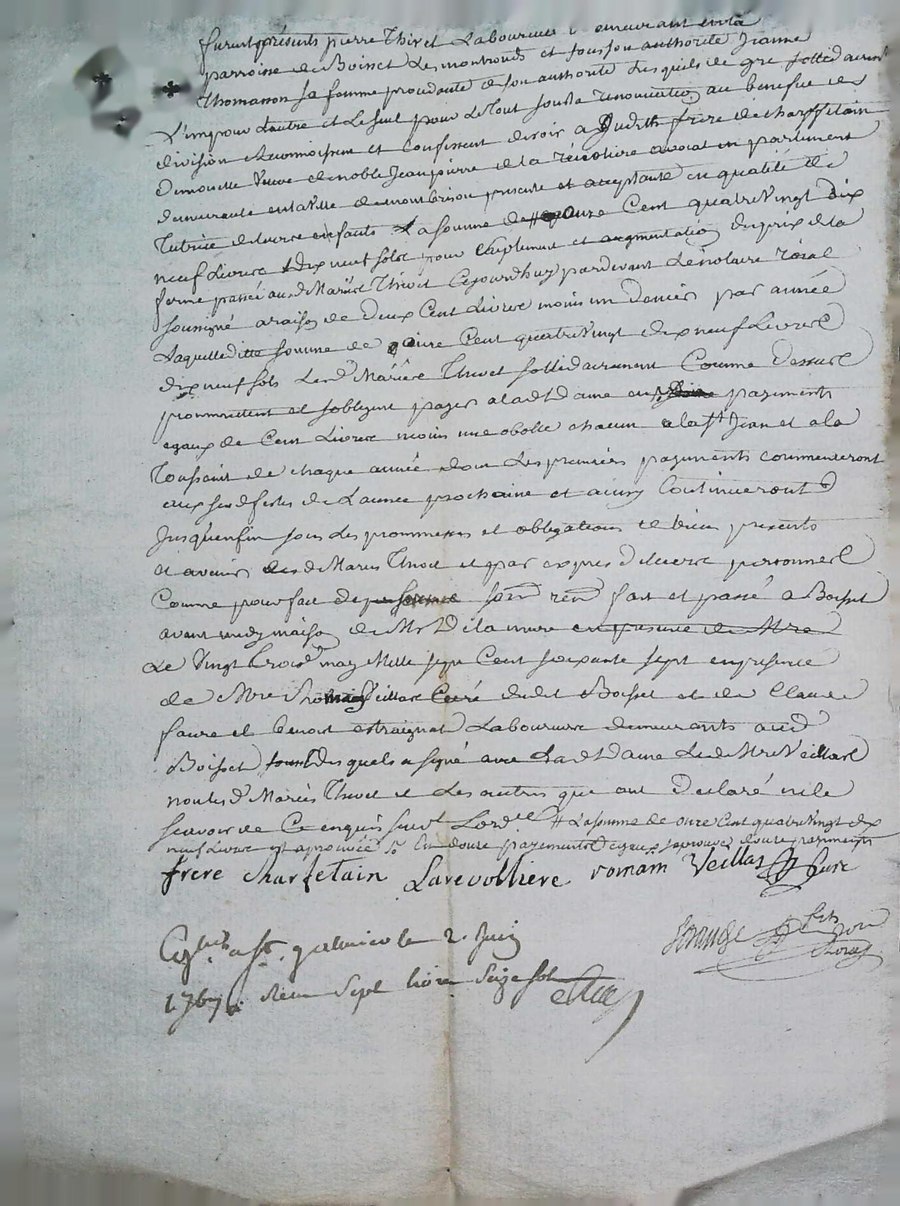 furent présents pierre Thivet Laboureur demeurant en la
parroisse de Boisset Les montrond et sous son authorité Jeanne
Thomasson sa femme procedante de son authorité Lesquels de gré sollidairement
L'un pour L'autre et Le seul pour Le tout sous la renonciation au benefice de
division Reconnoissent et confessent devoir a Judith frere de charfetain
Dimouette Veuve de noble Jean pierre de la révolière avocat en parlement
demeurante en la Ville de montbrison presente et acceptante en qualité de
Tutrice de leurs enfants La somme de # onze Cent quatre vingt dix
neuf Livres dix neuf sols pour Suplement et augmentation du prix de la
ferme passée aud Mariés Thivet Cejourdhuy pardevant Le notaire roial
soussigné a raison de Deux Cent Livres moins un Denier par année
Laquelle ditte somme de onze Cent quatre vingt dix neuf Livres
dix neuf sols Lesd Mariés Thivet sollidairement Comme dessus
promettent et sobligent payer a lad dame en payements
egaux de Cent Livres moins une obolle chacun a la st Jean et a la
Toussaint de chaque année dont Les premiers payments commenceront
aux fetes de L'année prochaine et ainsy Continueront
Jusqu'en fin sous Les promesses et obligations de biens presents
et avenir desd Mariés Thivet et par exprès de leurs personnes
Comme pour fait de soum renon fait et passé a Boisset
avant midy maison de Mr De la mure en presence de Mre
Le Vingt trois may Mille sept Cent soixante sept en presence
de Mre Thomas Veillas Curé dudit Boisset et de Claude
faure et benoit estraignat Laboureurs demeurants aud
Boisset desquels a signé avec Lad dame Led Mre Veillas
non lesd Mariés Thivet et Les autres qui ont Déclaré ne le
scavoir de Ce enquis suivt Lord.ce # La somme de onze Cent quatre vingt dix
neuf Livres est aprouvée En douze payements egaux japrouve douze payements
frere charfetain Larevolliere romain Veillas Curé
a St. galmier le 2. Juin
1767. Recu Sept livres Seize sols